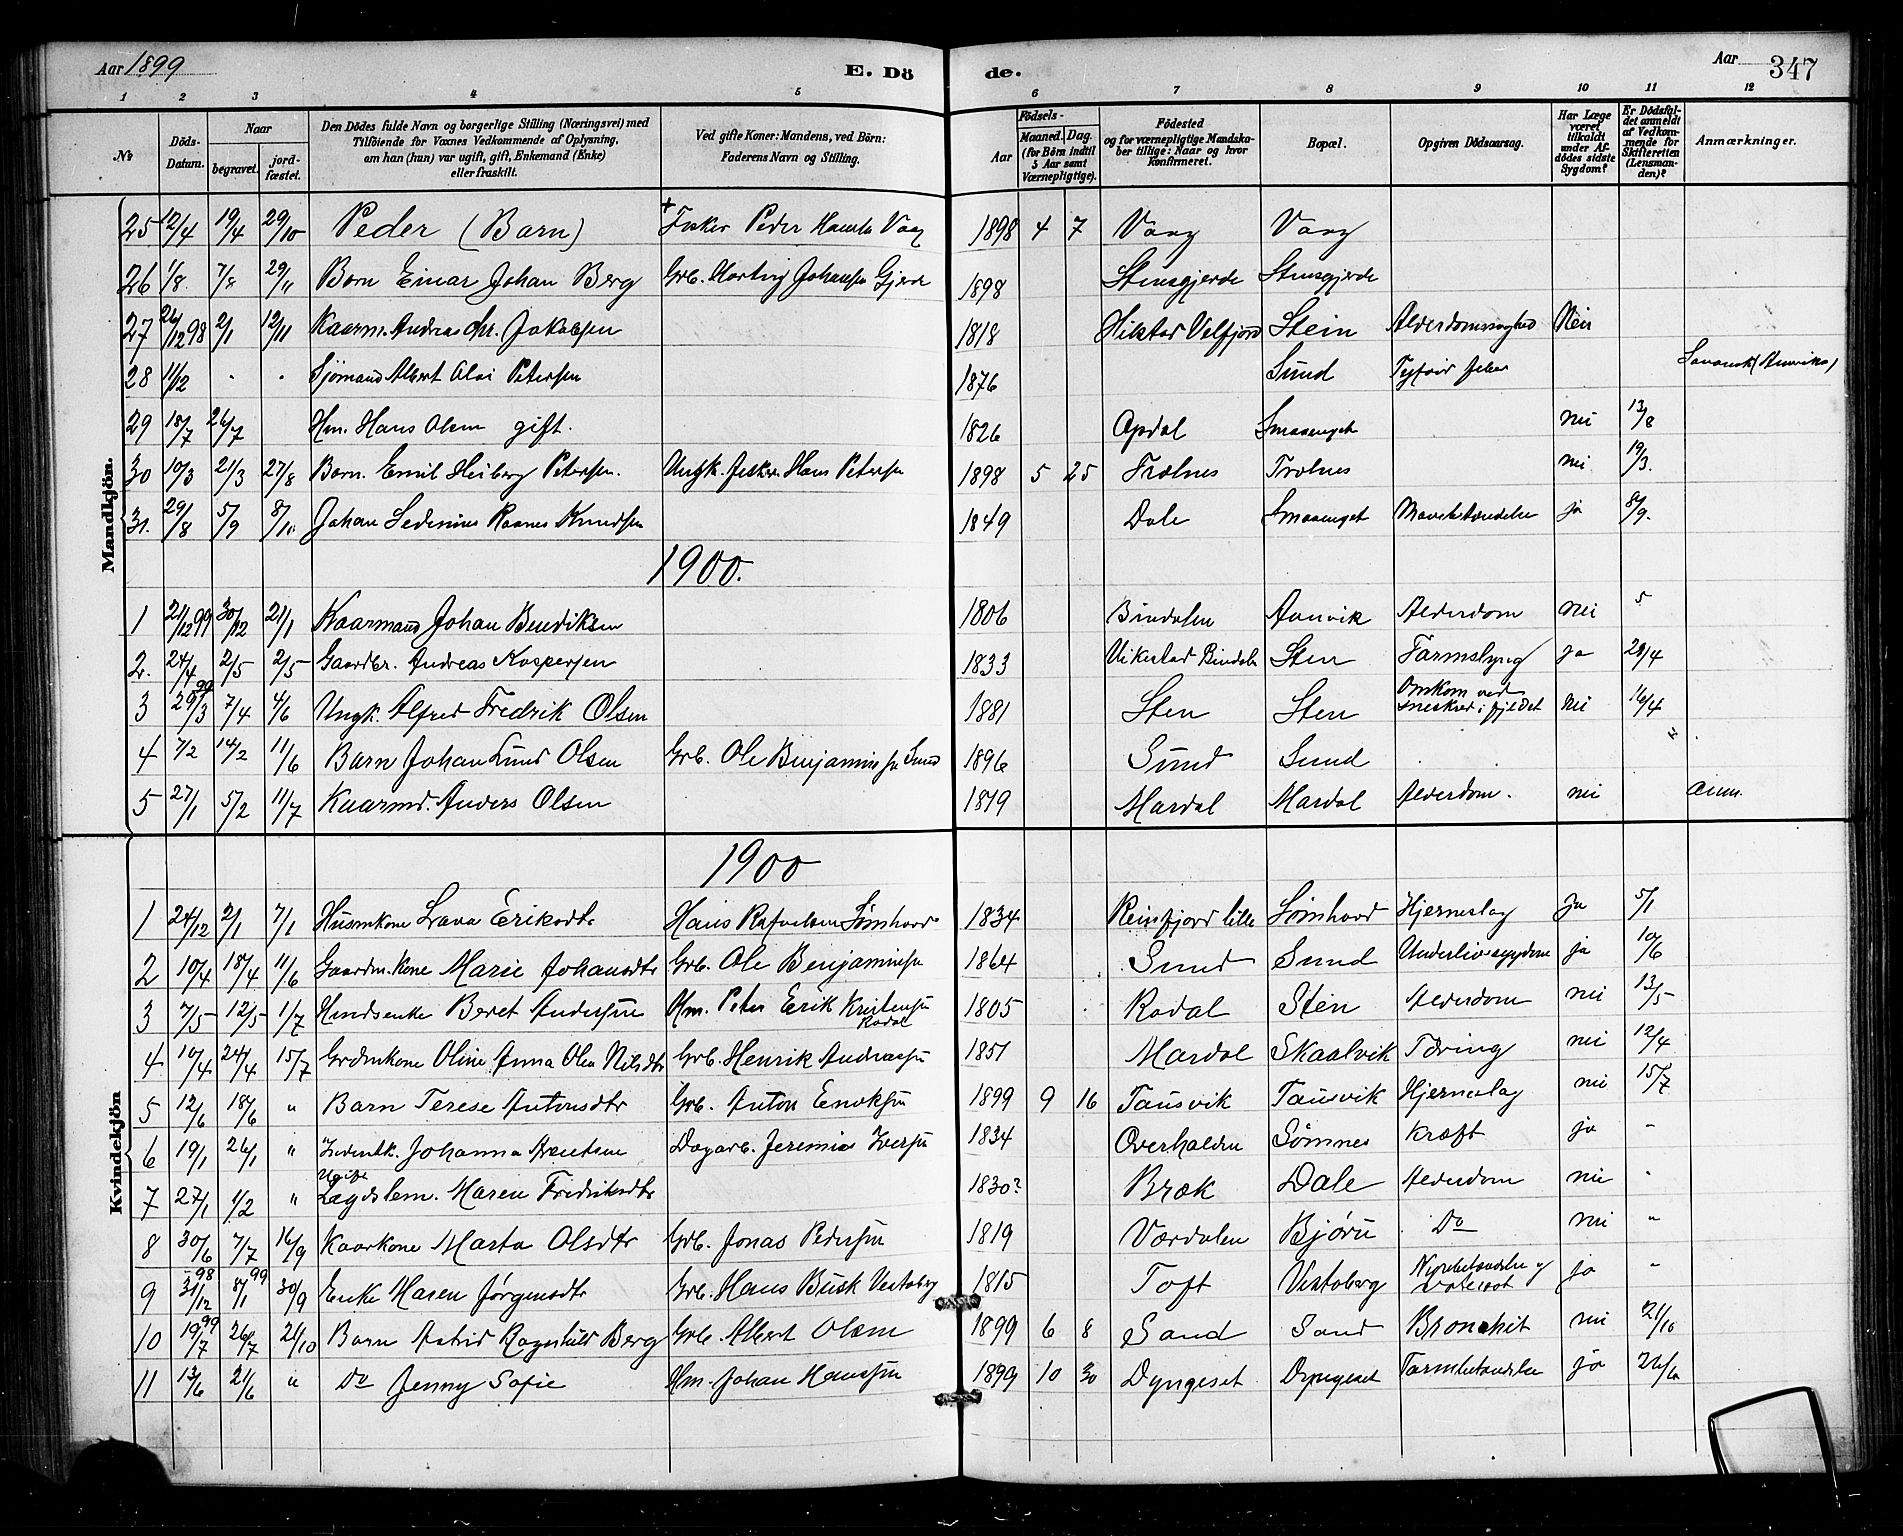 Aar 1899 E. Dö de. Aar 347
1 2 3 4 5 6 7 8 9 10 11 12
№ Döds-Datum. Naar begravet. jordfæstet. Den Dödes fulde Navn og borgerlige Stilling (Næringsvei) med Tilföiende for Voxnes Vedkommende af Oplysning, om han (hun) var ugift, gift, Enkemand (Enke) eller fraskilt. Ved gifte Koner: Mandens, ved Börn: Faderens Navn og Stilling. Födsels- Aar Maaned. Dag. (for Börn indtil 5 Aar samt Værnepligtige). Födested og for værnepligtige Mandskaber tillige: Naar og hvor konfirmeret. Bopæl. Opgiven Dödsaarsag. Har Læge været tilkaldt under Afdödes sidste Sygdom? Er Dödsfaldet anmeldt af Vedkommende for Skifteretten (Lensmanden)? Anmærkninger.
Mandkjön.
25 12/4 19/4 29/10 Peder (Barn) + Fisker Peder Vaag 1898 4 7 Vaag Vaag
26 1/8 7/8 29/11 Barn Einar Johan Berg Grb. Hartvig Johansen Gjerde 1898 Stensgjerde Stensgjerde
27 26/12 98 2/1 12/11 Kaarm. Andreas Chr. Jakobsen 1818 Vikstad Velfjord Stein Alderdomssvaghed Nei
28 11/2 " " Sjömand Albert Olai Petersen 1876 Sund Tyfoid feber
29 18/7 26/7 Hm. Hans Olsen gift. 1826 Opdal Smaaenget nei 13/8
30 10/3 21/3 27/8 Barn. Emil Heiberg Petersen. Ungk. Fisker Hans Petersen 1898 5 25 Trælnes Trælnes nei 19/3.
31. 29/8 5/9 8/10 Johan Sedenius Raanes Knudsen 1849 Dale Smaaenget Mavebetændelse ja 8/9.
1900.
1 21/12 99 30/12 21/1 Kaarmand Johan Bendiksen 1806 Bindalen Aarvik Alderdom nei 5
2. 24/4 2/5 2/5 Gaardbr. Andreas Kaspersen 1833 Vikestad Bindalen Sten Tarmslyng ja 28/4
3 29/3 99 7/4 4/6 Ungk. Alfred Fredrik Olsen 1881 Sten Sten Omkom ved sneskred i fjeldet nei 16/4
4 7/2 14/2 11/6 Barn Johan Lund Olsen Grb. Ole Benjaminsen Sund 1896 Sund Sund
5 27/1 5/2 11/7 Kaarmd. Anders Olsen 1819 Mardal Mardal Alderdom. nei anm.
Kvindekjön
1900
1 24/12 2/1 7/1 Husmkone Lava Eriksdtr Hans Rafaelsen Sömhovd 1834 Reinsfjord lille Sömhovd Hjerneslag Ja 5/1
2 10/4 18/4 11/6 Gaardm. Kone Marie Johansdtr Grb. Ole Benjaminsen 1864 Sund Sund Underlivssygdom ja 10/6
3 7/5 12/5 1/7 Hmdsenke Beret Andersen Hm. Peter Erik Kristensen Rodal 1805 Rodal Sten Alderdom nei 13/5
4 10/4 24/4 15/7 Grdmkone Oline Anna Olea Nilsdtr Grb. Henrik Andreassen 1851 Mardal Skaalvik Tæring nei 12/4
5 12/6 18/6 " Barn Terese Antonsdtr Grb. Anton Enoksen 1899 9 16 Tausvik Tausvik Hjerneslag nei 15/7
6 19/1 26/1 " Inderstk. Johanna Arentsen Dagarb. Jeremias Iversen 1834 Overhalden Sömnes Kræft ja "
7 27/1 1/2 " Ugift Lægdslem. Maren Fredriksdtr 1830? Bræk Dale Alderdom nei "
8 30/6 7/7 16/9 Kaarkone Marta Olsdtr Grb. Jonas Pedersen 1819 Værdalen Bjørn Do nei "
9 31/12 98 8/1 99 30/9 Enke Maren Jørgensdtr Grb. Hans Busk Vestaberg 1815 Toft Vestaberg Nyrebetændelse og Vatersot ja "
10 19/7 99 26/7 21/10 Barn Astrid Ragnhild Berg Grb. Albert Olsen 1899 6 8 Sand Sand Bronchit nei 21/10
11 13/6 21/6 " Do Jenny Sofie Hm. Johan Hanssen 1899 10 30 Dyngeset Dyngeset Tarmbetændelse ja